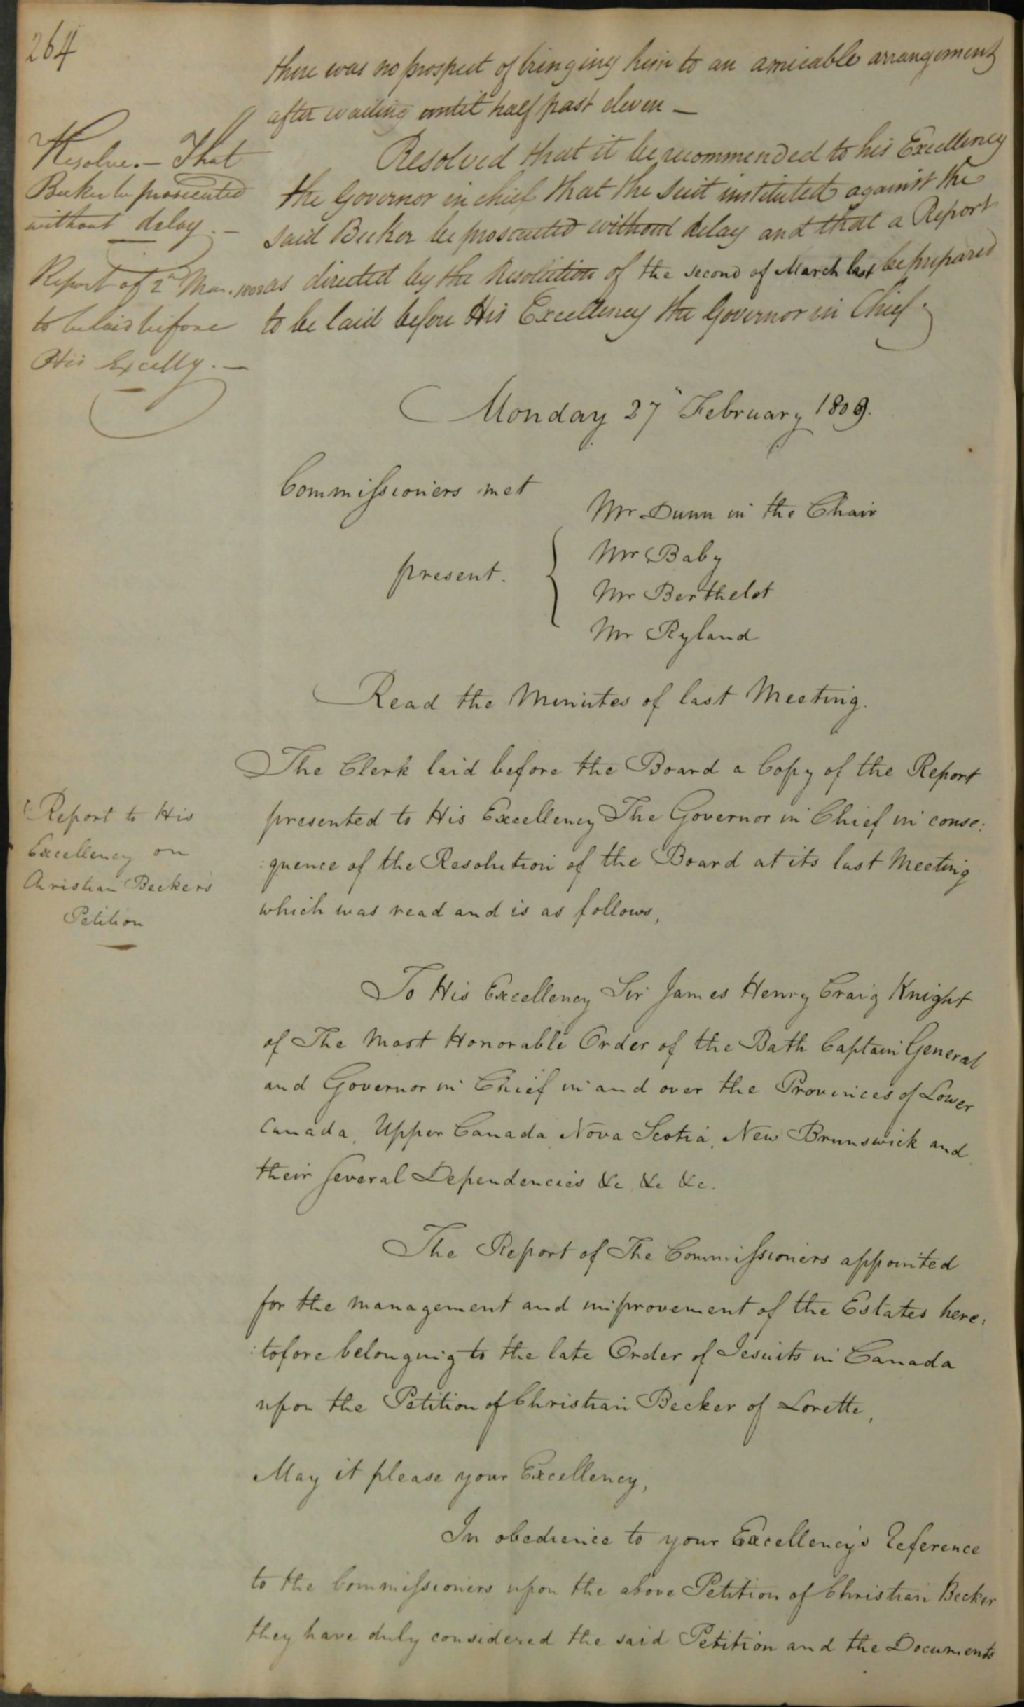 264
there was no prospect of bringing him to an amicable arrangement
after waiting until half past eleven —
Resolve. — That
Becker be prosecuted
without delay. —
Report of 2d Mar.
to be laid before
His Excelly. —
Resolved that it be recommended to his Excellency
the Governor in chief that the suit instituted against the
said Becker be prosecuted without delay and that a Report
as directed by the Resolution of the second of March last be prepared
to be laid before His Excellency the Governor in Chief.
Monday 27 February 1809.
Commissioners met
present.
Mr Dunn in the Chair
Mr Baby
Mr Berthelot
Mr Ryland
Read the Minutes of last Meeting.
Report to His
Excellency on
Christian Becker's
Petition
The Clerk laid before the Board a Copy of the Report
presented to His Excellency The Governor in Chief in conse:
:quence of the Resolution of the Board at its last Meeting
which was read and is as follows,
To His Excellency Sir James Henry Craig Knight
of The Most Honorable Order of the Bath Captain General
and Governor in Chief in and over the Provinces of Lower
Canada, Upper Canada, Nova Scotia, New Brunswick and
their several Dependencies &c &c &c.
The Report of The Commissioners appointed
for the management and improvement of the Estates here:
:tofore belonging to the late Order of Jesuits in Canada
upon the Petition of Christian Becker of Lorette,
May it please your Excellency,
In obedience to your Excellency's Reference
to the Commissioners upon the above Petition of Christian Becker
they have duly considered the said Petition and the Documents